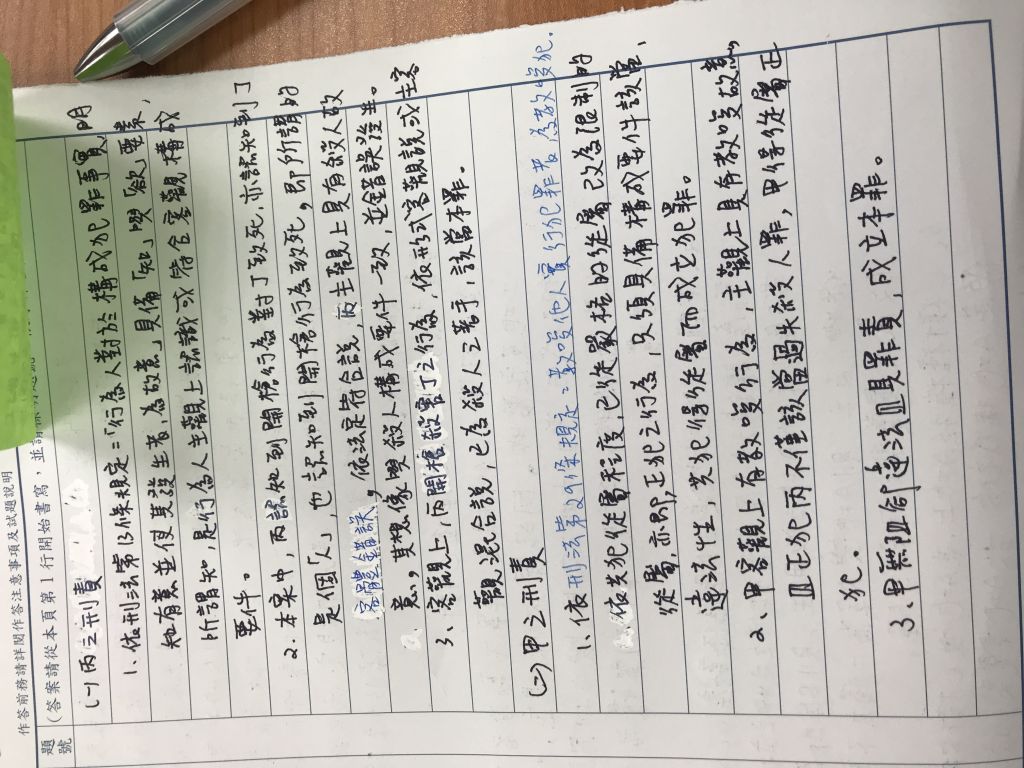 作答前務請詳閱作答注意事項及試題說明
題號
(答案請從本頁第1行開始書寫,並請
(一)丙之刑責
1、依刑法第13條規定=「行為人對於構成犯罪事實,明
知有意並使其發生者,為故意」具備「知」與「欲」要素,
所謂知,是行為人主觀上認識或符合客觀構成
要件。
2、本案中,丙認知到開槍行為對丁致死,亦認知到丁
是個「人」,也認知到開槍行為致死,即所謂的
客體錯誤,依法定符合說,丙主觀上具有殺人故
意,其想像與殺人構成要件一致,並錯誤證〓。
3、客觀上,丙開槍殺害丁之行為,依形式客觀說或主客
觀混合說,已為殺人之著手,該當本罪。
(二)甲之刑責
1、依刑法第29條規定=教唆他人實行犯罪者為教唆犯.
依共犯從屬程度,已從嚴格的從屬改為限制的
從屬,亦即,正犯之行為,只須具備構成要件該當、
違法性,共犯得從屬而成立犯罪。
2、甲客觀上有教唆行為,主觀上具有教唆故意,
且正犯丙不僅該當過失殺人罪,甲得從屬正
犯.
3、甲無阻卻違法且罪責,成立本罪。